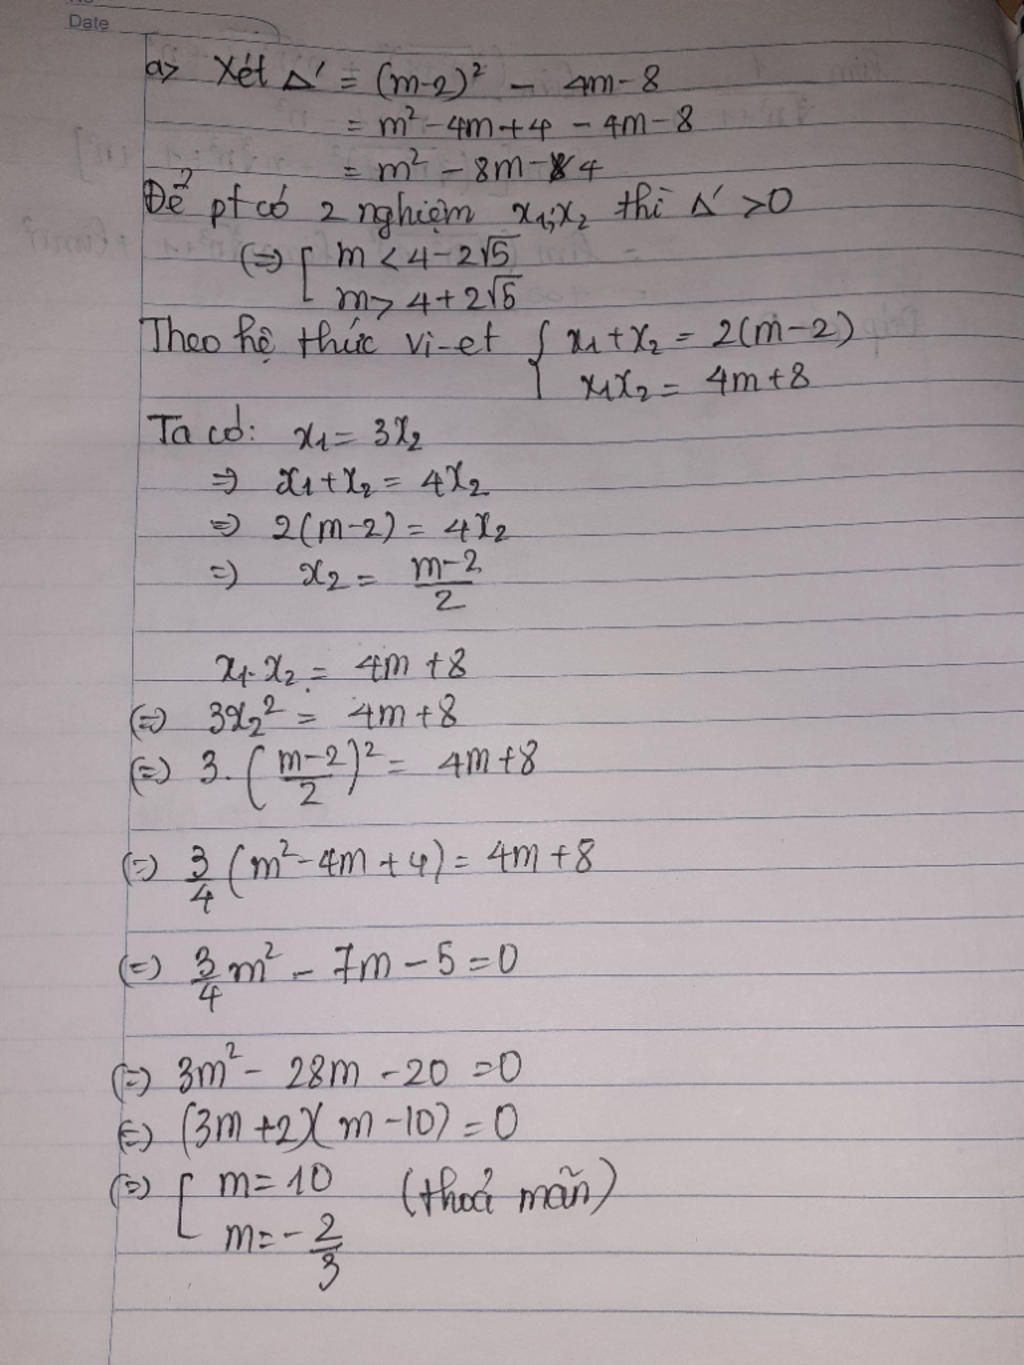 Date
a> Xét Δ' = (m-2)² - 4m-8
= m² - 4m + 4 - 4m - 8
= m² - 8m - 4
Để pt có 2 nghiệm x₁;x₂ thì Δ' >0
(=) [ m < 4-2√5
m > 4+2√5
Theo hệ thức vi-et { x₁+x₂ = 2(m-2)
x₁x₂ = 4m+8
Ta có: x₁ = 3x₂
=> x₁+x₂ = 4x₂
=> 2(m-2) = 4x₂
=) x₂ = (m-2)/2
x₁.x₂ = 4m+8
(=) 3x₂² = 4m+8
(=) 3.((m-2)/2)² = 4m+8
(=) 3/4 (m²-4m+4) = 4m+8
(=) 3/4 m² - 7m - 5 = 0
(=) 3m² - 28m - 20 = 0
(=) (3m+2)(m-10) = 0
(=) [ m = 10 (thoả mãn)
m = -2/3